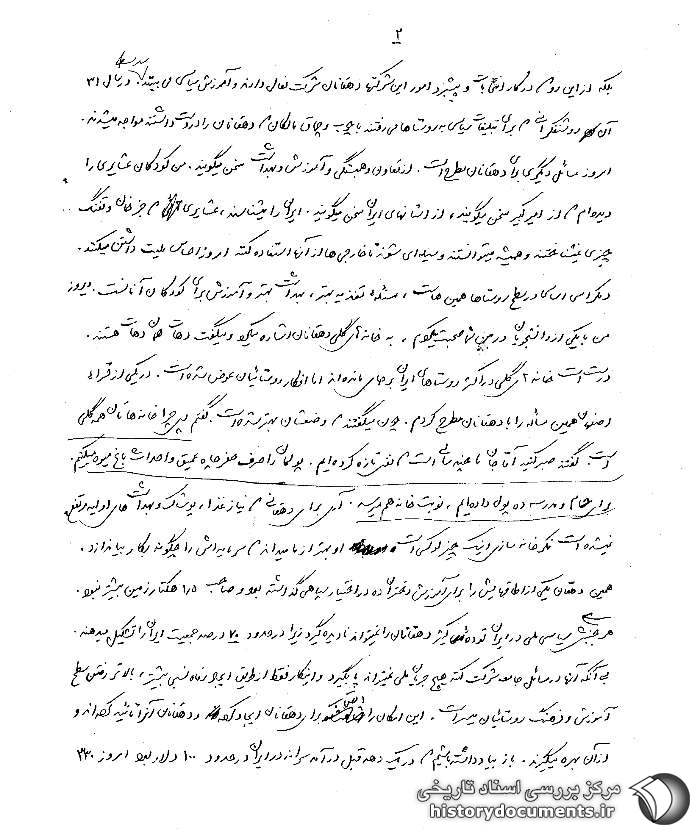 ۲
بلکه از این رو که در کار انتخابات و پیشبرد امور این شرکتها دهقانان شرکت فعال دارند و آموزش سیاسی می بینند. در سال ۳۱
آن روشنفکرانی که برای تبلیغات سیاسی به روستاها می رفتند با چوب و چماق مالکان که دهقانان را در دست داشتند مواجه میشدند.
امروز مسائل دیگری برای دهقانان مطرح است. از تعاون و همبستگی و آموزش و بهداشت سخن میگویند. من کودکان عشایری را
دیده‌ام که از امیرکبیر سخن میگویند، از استانهای ایران سخن میگویند. ایران را میشناسند، عشایری که جز خان و تفنگ
چیزی نمیشناختند و همیشه میتوانستند وسیله‌ای شوند تا خارجی‌ها از آنها استفاده کنند امروز احساس ملیت داشتن میکنند.
دیگر اساسی در سطح روستاها همین هاست، مسئله تغذیه بهتر، بهداشت بهتر و آموزش برای کودکان آنانست. دیروز
من با یکی از دانشجویان در صحبت میکردم، به خانه‌های گلی دهقانان اشاره میکرد و میگفت دهات همان دهات هستند.
درست است خانه‌های گلی در اکثر روستاهای ایران بر جای مانده‌اند اما افکار روستائیان عوض شده است. در یکی از قراء
اصفهان همین مسأله را با دهقانان مطرح کردم. چون میگفتند که وضعشان بهتر شده است. گفتم پس چرا خانه‌هاتان همه گلی
است. گفتند صبر کنید آقا جان ما چند سالی است که نفس تازه کرده‌ایم. پولمان را صرف حفر چاه عمیق و احداث باغ میوه میکنیم.
برای حمام و مدرسه ده پول داده‌ایم، نوبت خانه هم میرسد. آری برای دهقانی که نیاز غذا، پوشاک و بهداشت های اولیه مرتفع
نشده است فکر خانه سازی از یک چیز لوکسی است. او بهتر از ما میداند که سرمایه‌اش را چگونه بکار بیاندازد.
همین دهقان یکی از اطاقهایش را برای آموزش دختران ده در اختیار سپاهی گذاشته بود و صاحب ۱/۵ هکتار زمین بیشتر نبود.
هر جنبش سیاسی ملی در ایران توده دهقانان را نمیتواند نادیده گیرد زیرا در حدود ۷۰ درصد جمعیت ایران را تشکیل میدهند.
بی آنکه آنها در مسائل جامعه شرکت کنند هیچ جریان ملی نمیتواند پا بگیرد و اینکار فقط از طریق ایجاد رفاه نسبی بیشتر، بالاتر رفتن سطح
آموزش و فرهنگ روستائیان میسر است. این امکان را برای دهقانان ایجاد کرده و دهقانان آنرا تائید کرده‌اند و
از آن بهره میگیرند. باز بیاد داشته باشیم که در یک دهه قبل درآمد سرانه در ایران در حدود ۱۰۰ دلار بود امروز ۳۳۰
مرکز بررسی اسناد تاریخی
historydocuments.ir